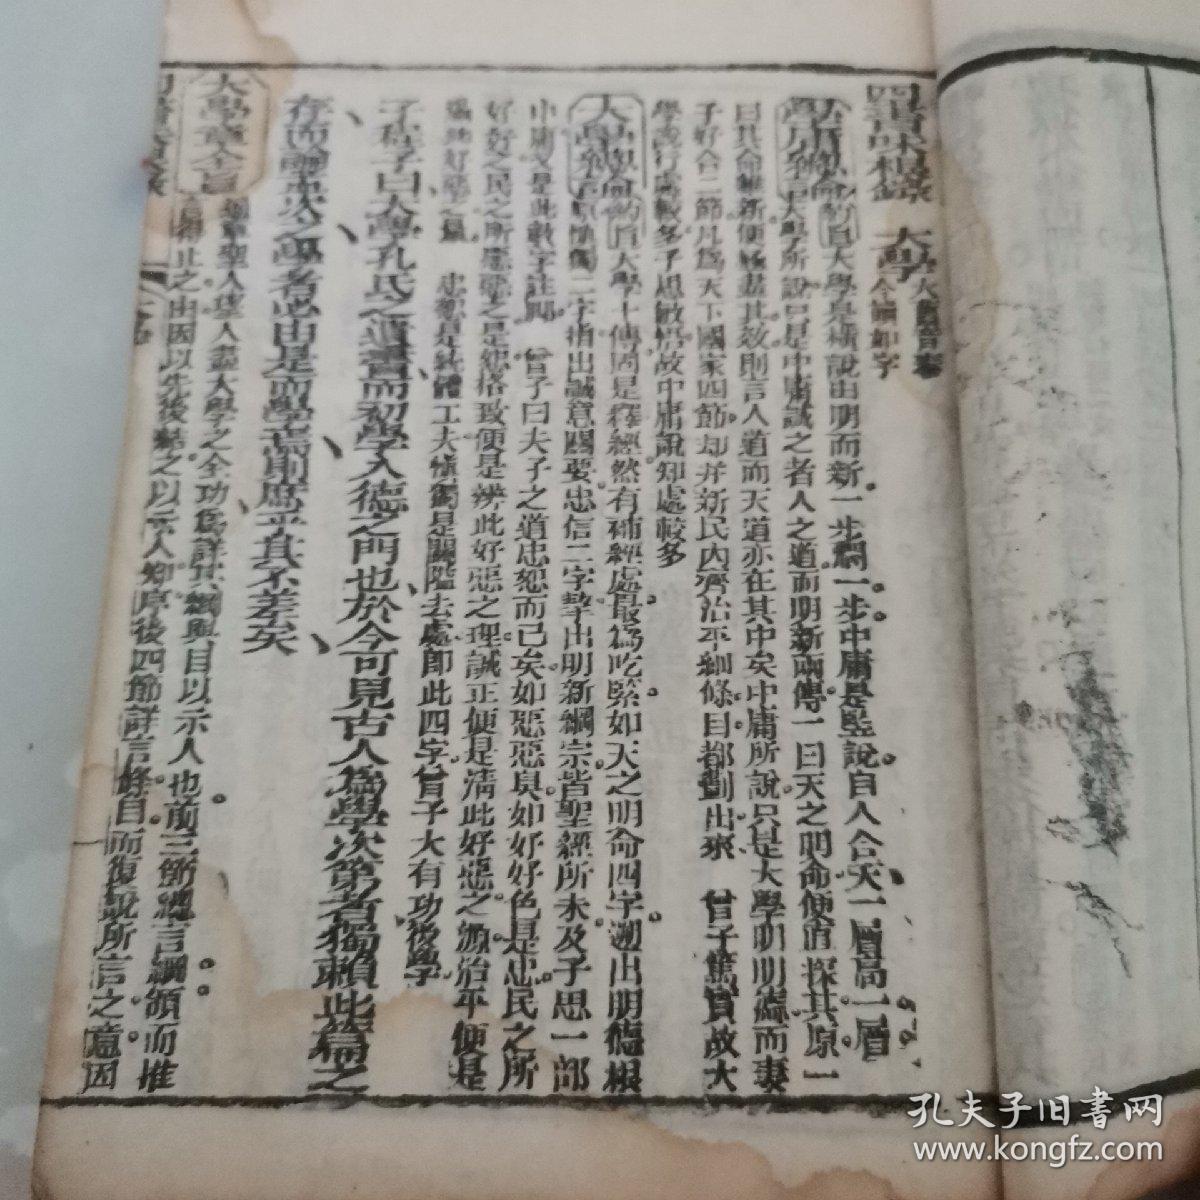 四書味根錄 大學
大學是橫說由明而新一步闊一步中庸是竪說自人合天一層高一層
大學所說只是中庸誠之者人之道而明新兩傳一曰天之明命便直探其原一
曰其命維新便極盡其效則言人道而天道亦在其中矣中庸所說只是大學明明德而
子好合二節凡為天下國家四節却并新民內齊治平細條目都劃出來 曾子篤實故大
學說行處較多子思敏悟故中庸說知處較多
大學十傳固是釋經然有補經處最為吃緊如天之明命四字遡出明德根
原慎獨二字指出誠意關要忠信二字挈出明新綱宗皆聖經所未及子思一部
中庸又是此數字註脚 曾子曰夫子之道忠恕而已矣如惡惡臭如好好色是忠民之所
好好之民之所惡惡之是恕格致便是辨此好惡之理誠正便是清此好惡之源治平便是
此好惡之量 忠恕是純體工夫慎獨是關隘去處即此四字曾子大有功後學
子程子曰大學孔氏之遺書而初學入德之門也於今可見古人為學次第者獨賴此篇之
存而論孟次之學者必由是而學焉則庶乎其不差矣
大學章全旨
聖人盡大學之全功為詳其綱與目以示人也前三節總言綱領而推
得止之由因以先後結之以示人知序後四節詳言條目而復說所言之意因
孔夫子旧書网
www.kongfz.com